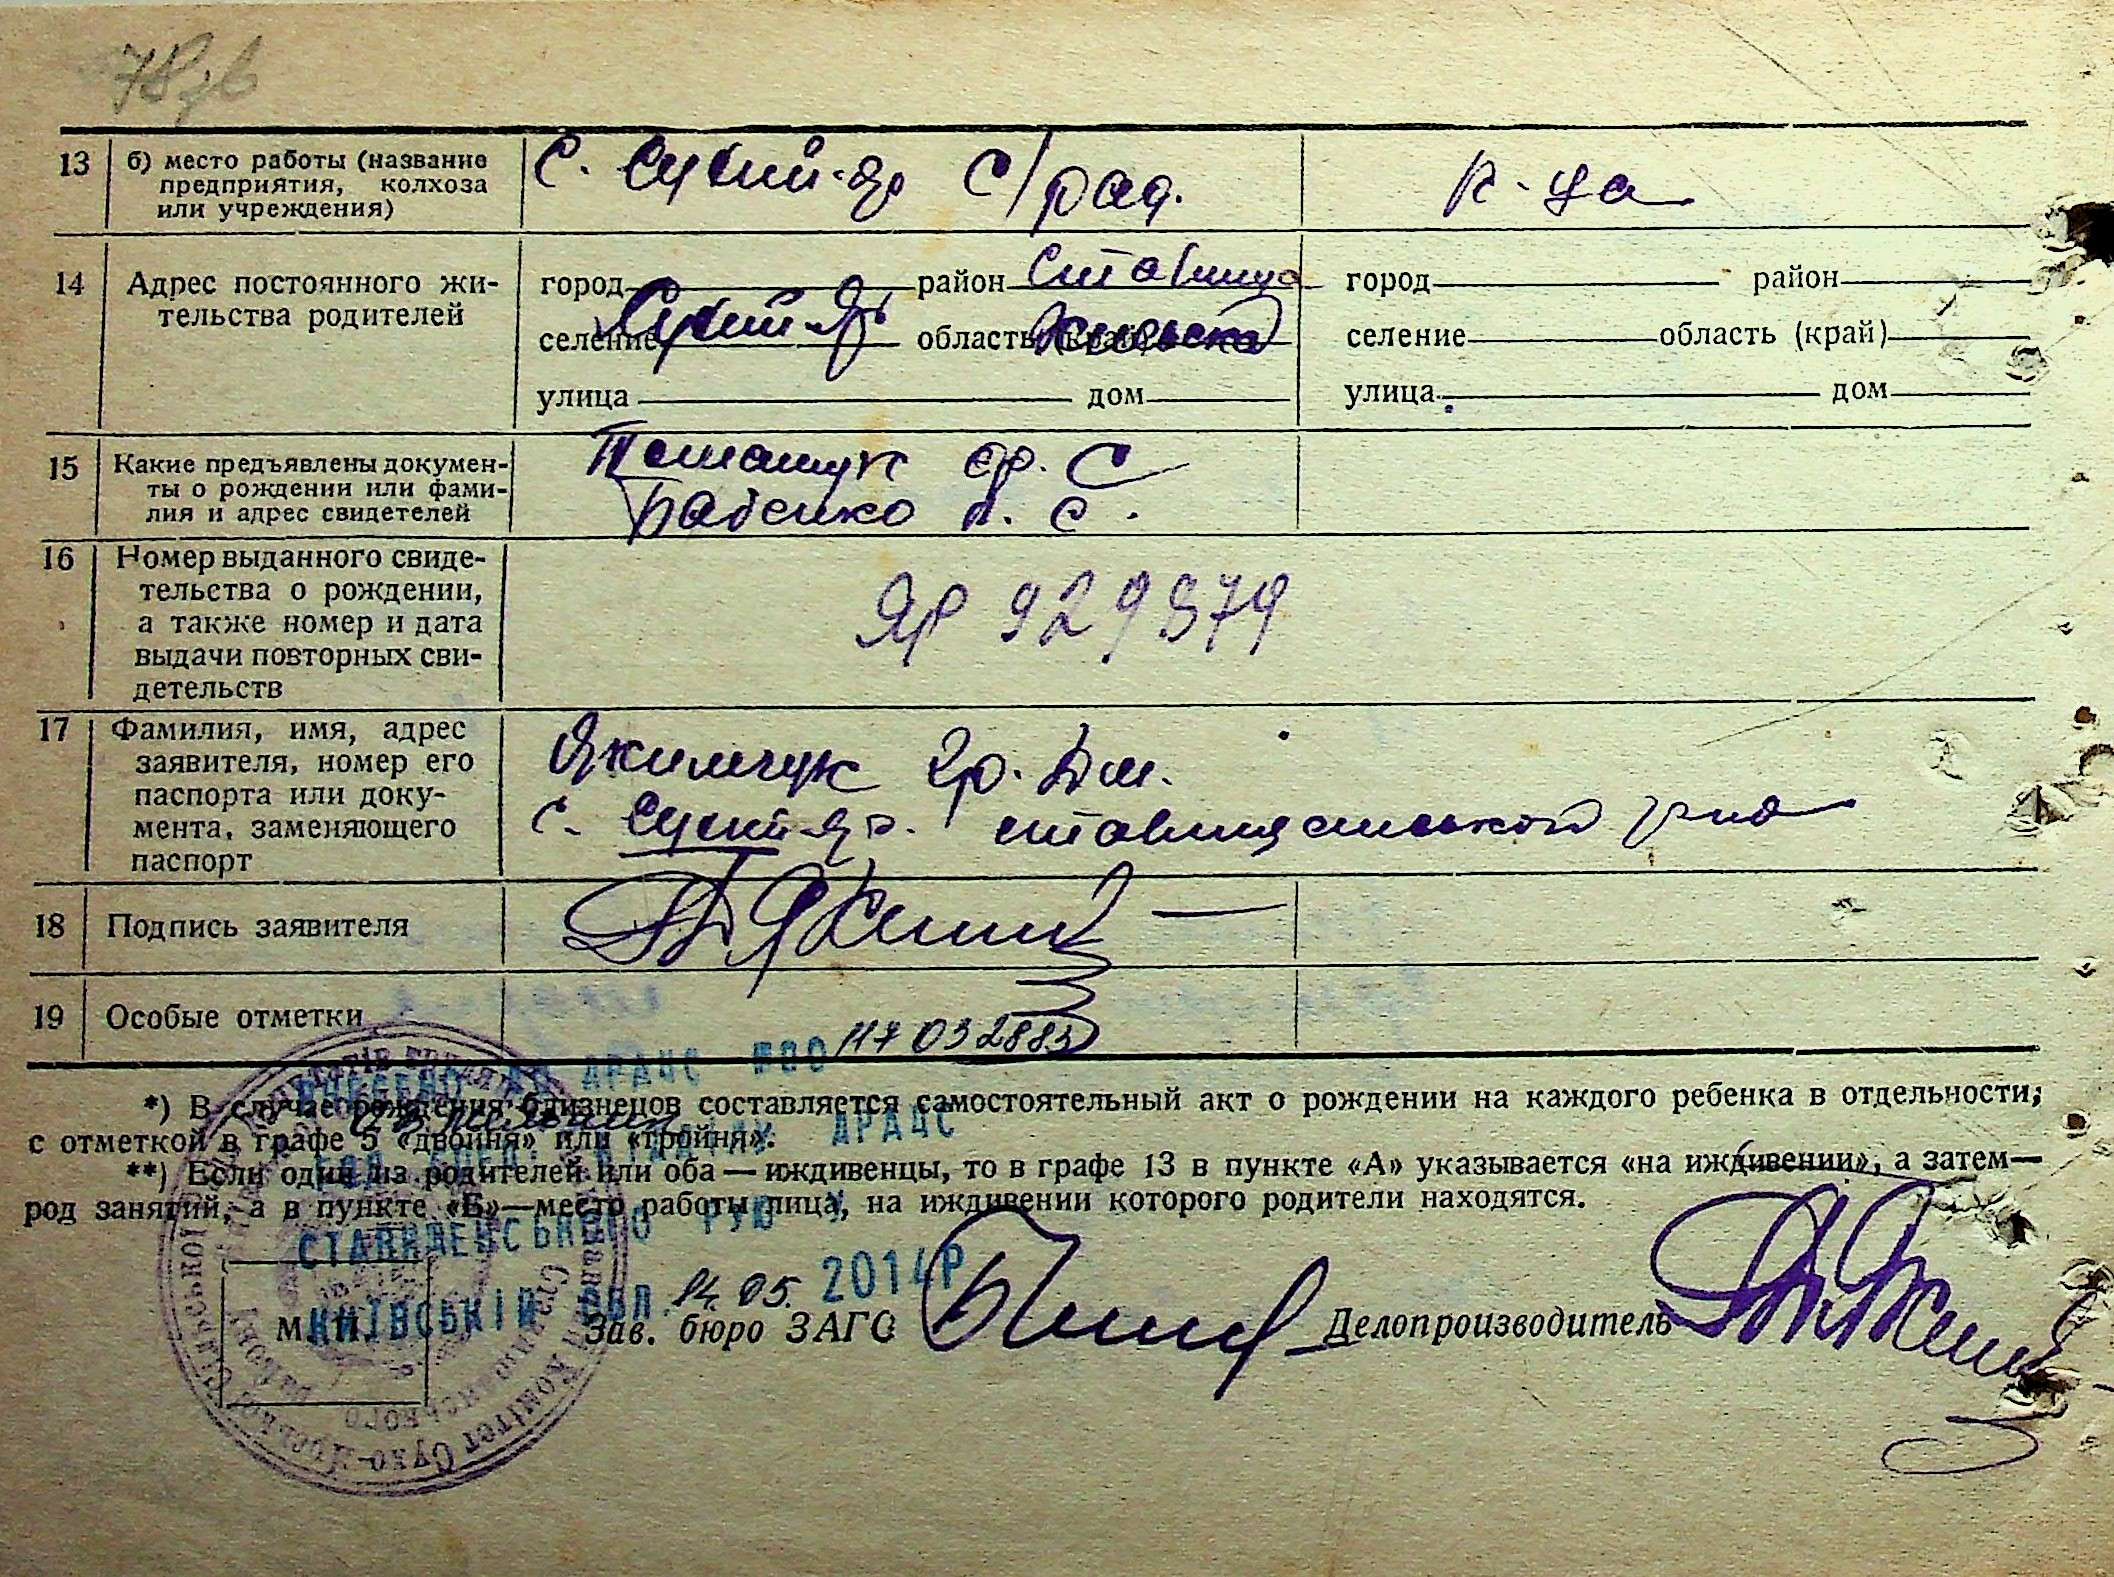 13 б) место работы (название
предприятия, колхоза
или учреждения)
с. Сухий-Яр с/рад.
к-ца
14 Адрес постоянного жи-
тельства родителей
город район Ставище
селение Сухий-Яр область (край) Київська
улица дом
город район
селение область (край)
улица дом
15 Какие предъявлены докумен-
ты о рождении или фами-
лия и адрес свидетелей
С
Бабенко С.
16 Номер выданного свиде-
тельства о рождении,
а также номер и дата
выдачи повторных сви-
детельств
ЯР 929979
17 Фамилия, имя, адрес
заявителя, номер его
паспорта или доку-
мента, заменяющего
паспорт
Якимчук Гр. Дм.
с. Сухий-Яр. Ставищанського р-на
18 Подпись заявителя
19 Особые отметки
117032883
ВНЕСЕНО ДРАЦС
*) В случае рождения близнецов составляется самостоятельный акт о рождении на каждого ребенка в отдельности,
с отметкой в графе 5 «двойня» или «тройня».
ДРАЦС
**) Если один из родителей или оба — иждивенцы, то в графе 13 в пункте «А» указывается «на иждивении», а затем —
род занятий, а в пункте «Б» — место работы лица, на иждивении которого родители находятся.
СТАВИЩЕНСЬКОГО РУЮ У
КИЇВСЬКІЙ ОБЛ. 14.05. 2014Р
М. П.
Зав. бюро ЗАГС Делопроизводитель